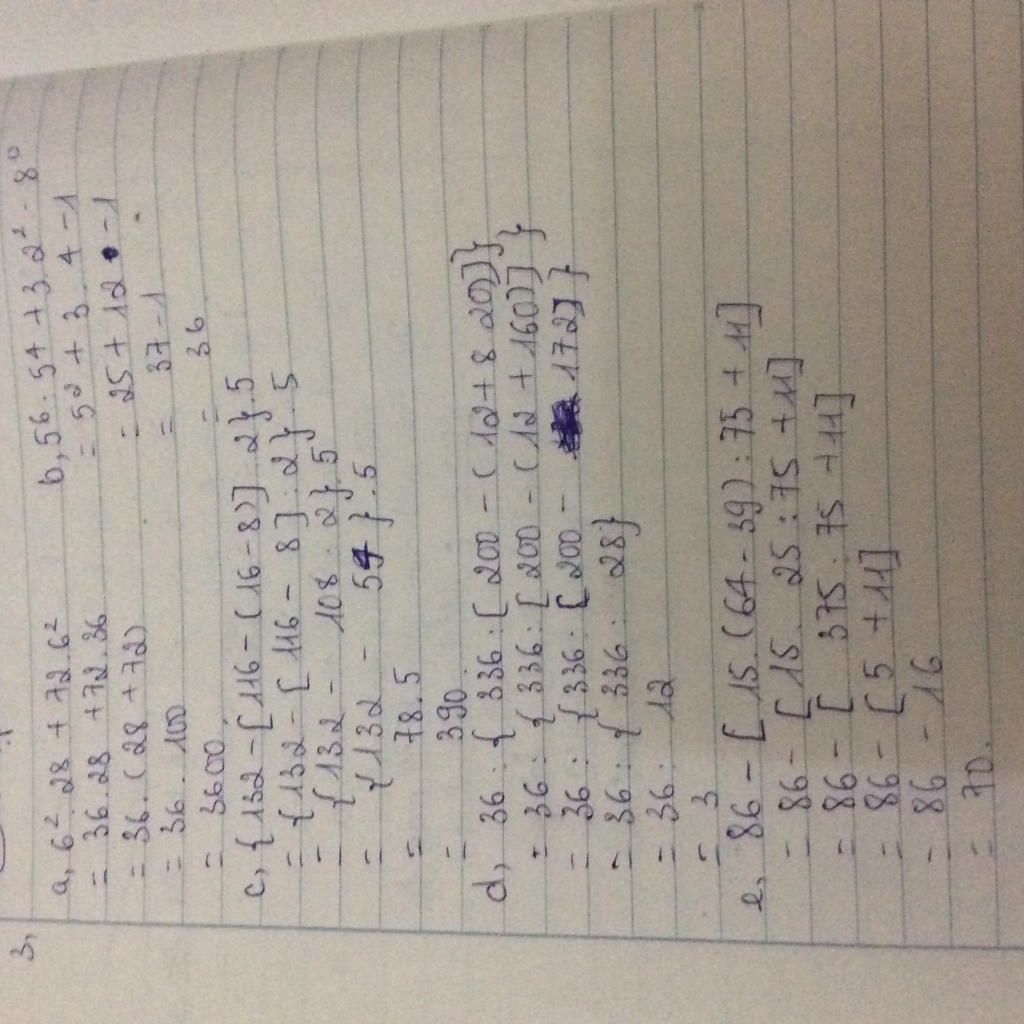 3,
a, 6². 28 + 72. 6²
= 36. 28 + 72. 36
= 36. (28 + 72)
= 36. 100
= 3600
b, 5⁶: 5⁴ + 3. 2² - 8⁰
= 5² + 3. 4 - 1
= 25 + 12 - 1
= 37 - 1
= 36
c, {132 - [116 - (16 - 8)]: 2}. 5
= {132 - [116 - 8]: 2}. 5
= {132 - 108: 2}. 5
= {132 - 54}. 5
= 78. 5
= 390
d, 36: {336: [200 - (12 + 8. 20)]}
= 36: {336: [200 - (12 + 160)]}
= 36: {336: [200 - 172]}
= 36: {336: 28}
= 36: 12
= 3
e, 86 - [15. (64 - 39): 75 + 11]
= 86 - [15. 25: 75 + 11]
= 86 - [375: 75 + 11]
= 86 - [5 + 11]
= 86 - 16
= 70.